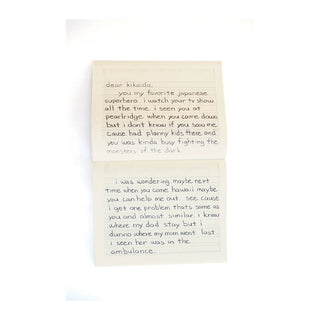 dear kikaida,
you my favorite japanese
superhero. i watch your tv show
all the time. i seen you at
pearlridge when you came down
but i dont know if you saw me
cause had planny kids there and
you was kinda busy fighting the
monsters of the dark.
i was wondering maybe next
time when you come hawaii maybe
you can help me out. see cause
i get one problem thats same as
you and almost similar. i know
where my dad stay but i
dunno where my mom went. last
i seen her was in the
ambulance.